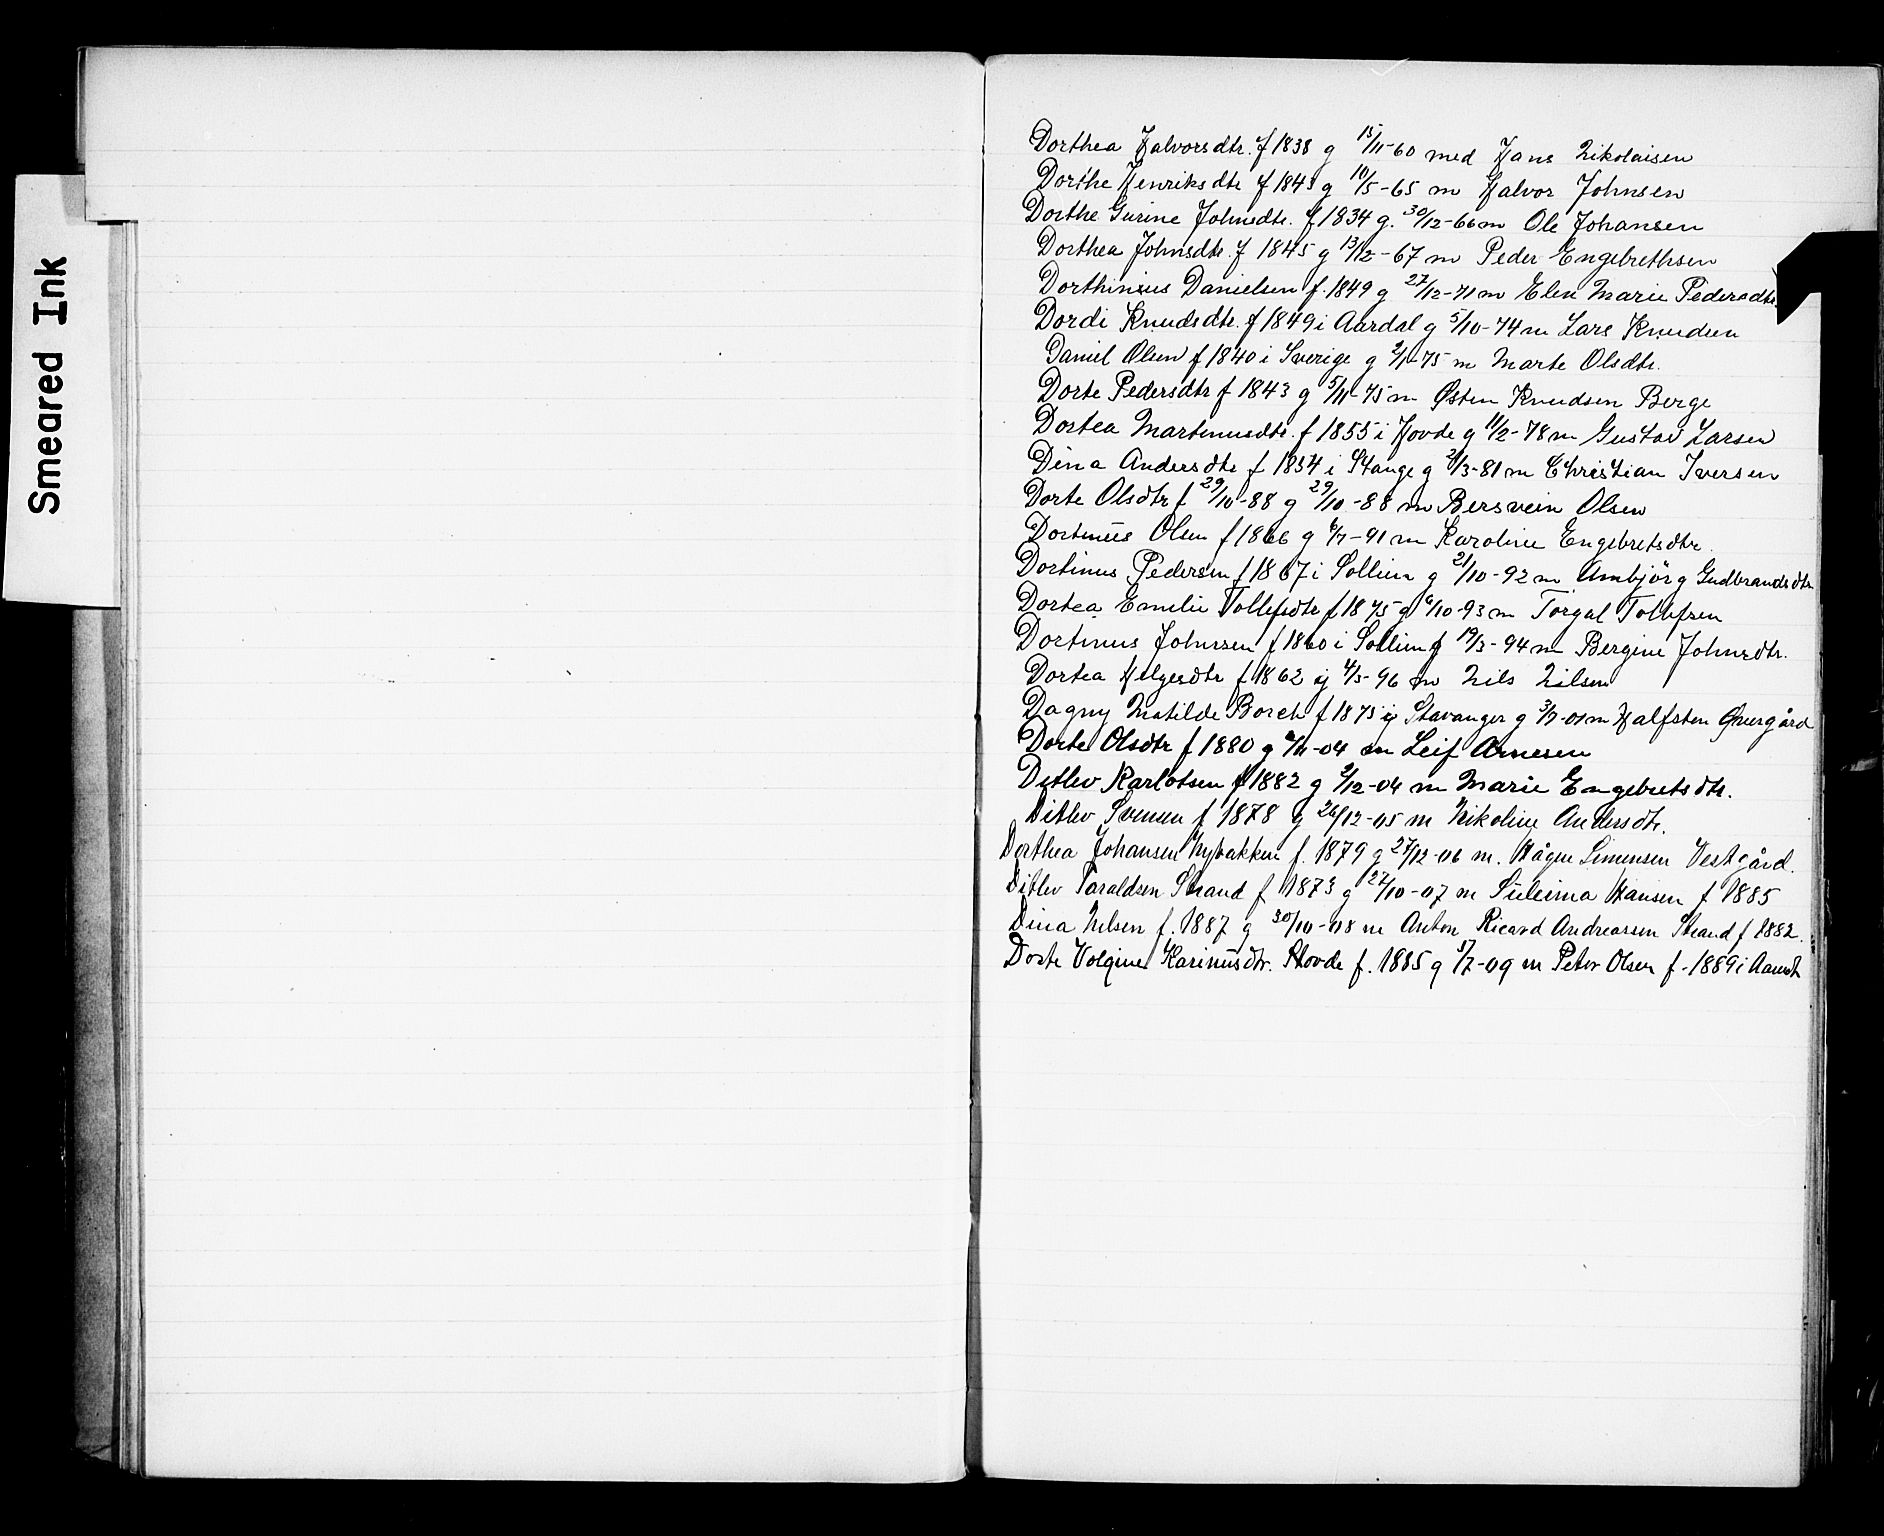 Smeared Ink
Dorthea Halvorsdtr. f 1838 g 15/11-60 med Hans Nikolaisen
Dorthe Henriksdtr f 1843 g 10/5-65 m Halvor Johnsen
Dorthe Gurine Johnsdtr. f 1834 g. 30/12-66 m Ole Johansen
Dorthea Johnsdtr. f 1845 g 13/12-67 m Peder Engebrethsen
Dorthinius Danielsen f. 1849 g 27/12-71 m Elen Marie Pedersdtr
Dordi Knudsdtr. f 1849 i Aardal g 5/10-74 m Lars Knudsen
Daniel Olsen f 1840 i Sverige g 2/1-75 m Marte Olsdtr.
Dorte Pedersdtr f 1843 g 5/11-75 m Østen Knudsen Berge
Dortea Martinusdtr. f 1855 i Hovde g 11/2-78 m Gustav Larsen
Dina Andersdtr f 1854 i Stange g 21/3-81 m Christian Iversen
Dorte Olsdtr f 29/10-88 g 29/10-88 m Bersvein Olsen
Dortinus Olsen f 1866 g 6/7-91 m Karoline Engebretsdtr.
Dortinus Pedersen f 1867 i Sollien g 21/10-92 m Ambjör g Gudbrandsdtr
Dortea Emilie Tollefsdtr f 1875 g 6/10-93 m Torgal Tollefsen
Dortinus Johnsen f 1860 i Sollien g 19/3-94 m Bergine Johnsdtr.
Dortea Helgesdtr f 1862 g 4/5-96 m Nils Nilsen
Dagny Matilde Borch f 1875 i Stavanger g 3/7-01 m Halfsten Øvergård
Dorte Olsdtr f 1880 g 6/11-04 m Leif Arnesen
Ditlev Karlotsen f 1882 g 2/12-04 m Marie Engebretsdtr.
Ditlev Svensen f 1878 g 26/12-05 m Nikoline Andersdtr.
Dorthea Johansen Nybakken f. 1879 g 27/12-06 m. Hågen Simensen Vestgård.
Ditlev Taraldsen Strand f 1873 g 27/10-07 m Suleima Hansen f 1885
Dina Nilsen f. 1887 g 30/10-08 m Anton Ricard Andreassen Strand f 1882.
Dorte Volgine Karinusdtr. Hovde f. 1885 g 17-09 m Peter Olsen f. 1889 i Aamot